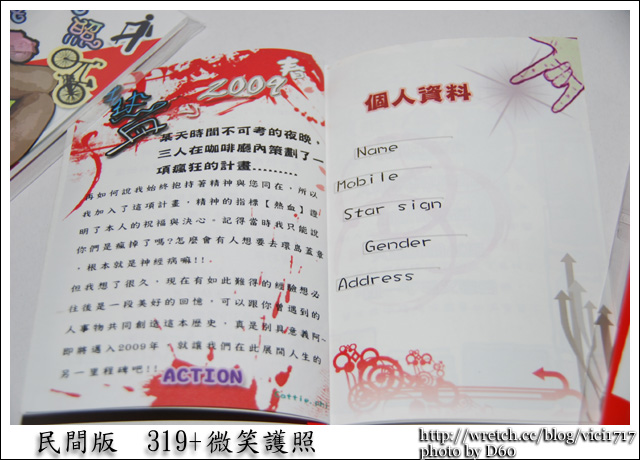 熱血
2009 春
某天時間不可考的夜晚,
三人在咖啡廳內策劃了一
項瘋狂的計畫.........
再如何說我始終抱持著精神與您同在,所以
我加入了這項計畫,精神的指標【熱血】證
明了本人的祝福與決心。記得當時我只能說
你們是瘋掉了嗎?怎麼會有人想要去環島蓋章
,根本就是神經病嘛!!.
但我想了很久,現在有如此難得的經驗想必
往後是一段美好的回憶,可以跟你曾遇到的
人事物共同創造這本歷史,真是別具意義阿~
即將邁入2009年,就讓我們在此展開人生的
另一里程碑吧!!
ACTION
個人資料
Name
Mobile
Star sign
Gender
Address
民間版 319+微笑護照
http://wretch.cc/blog/vici1717
photo by D60